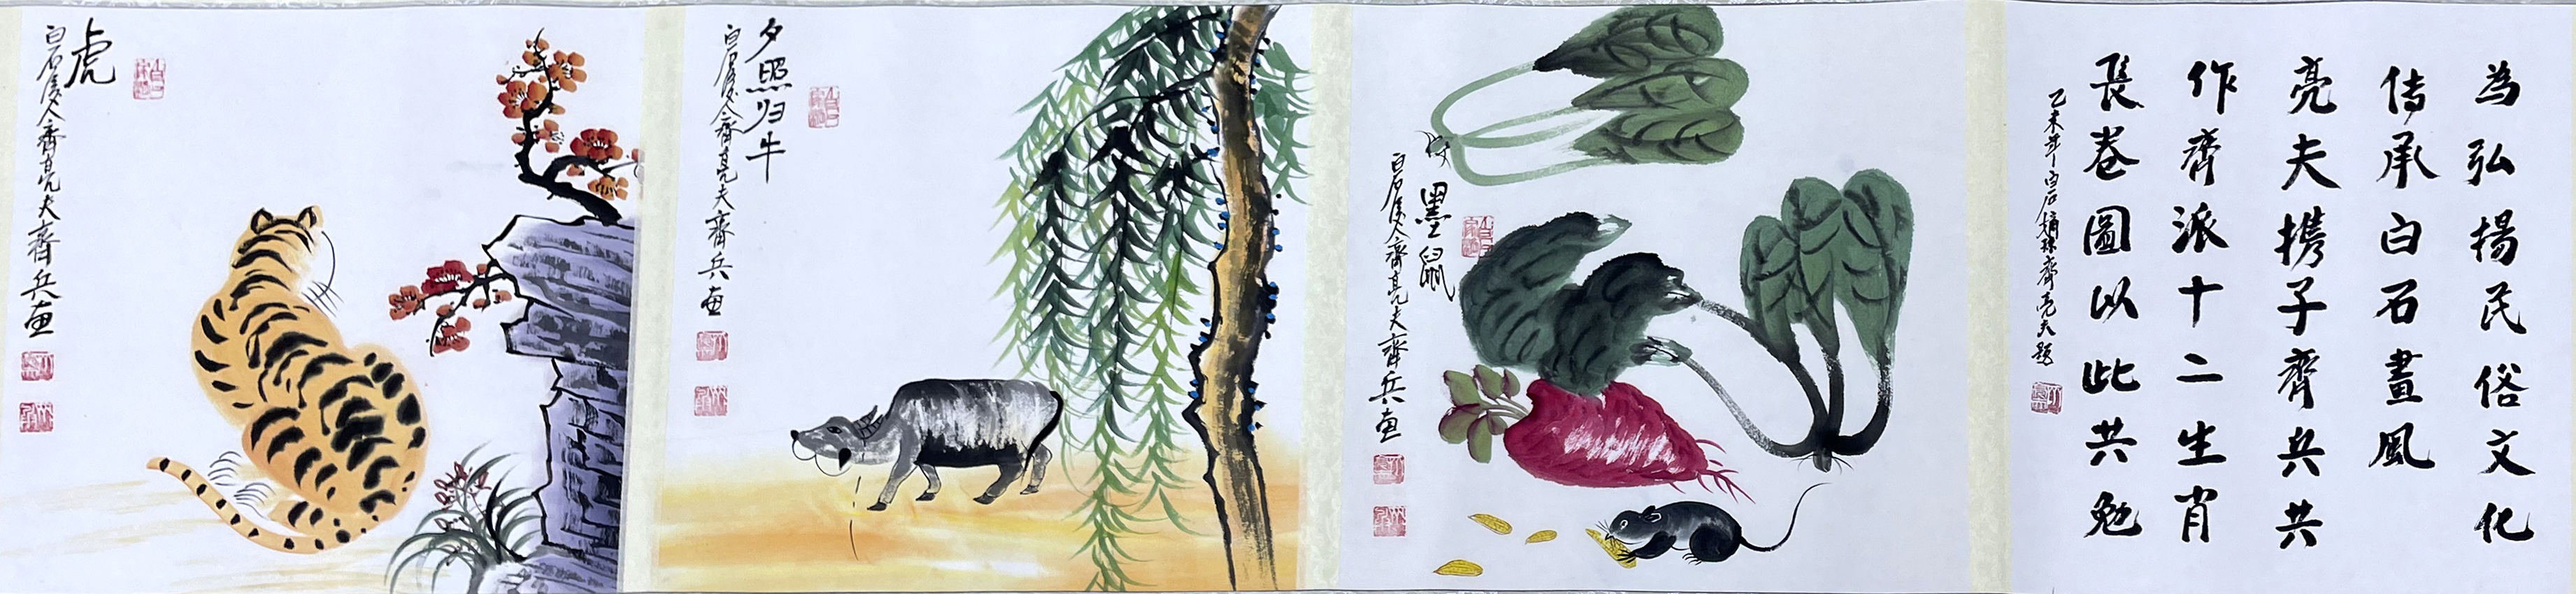 為弘揚民俗文化
传承白石畫風
亮夫携子齊兵共
作齊派十二生肖
長卷圖以此共勉
乙未年白石嫡孫齊亮夫題
黑鼠
白石后人齊亮夫齊兵画
夕照归牛
白石后人齊亮夫齊兵画
虎
白石后人齊亮夫齊兵画